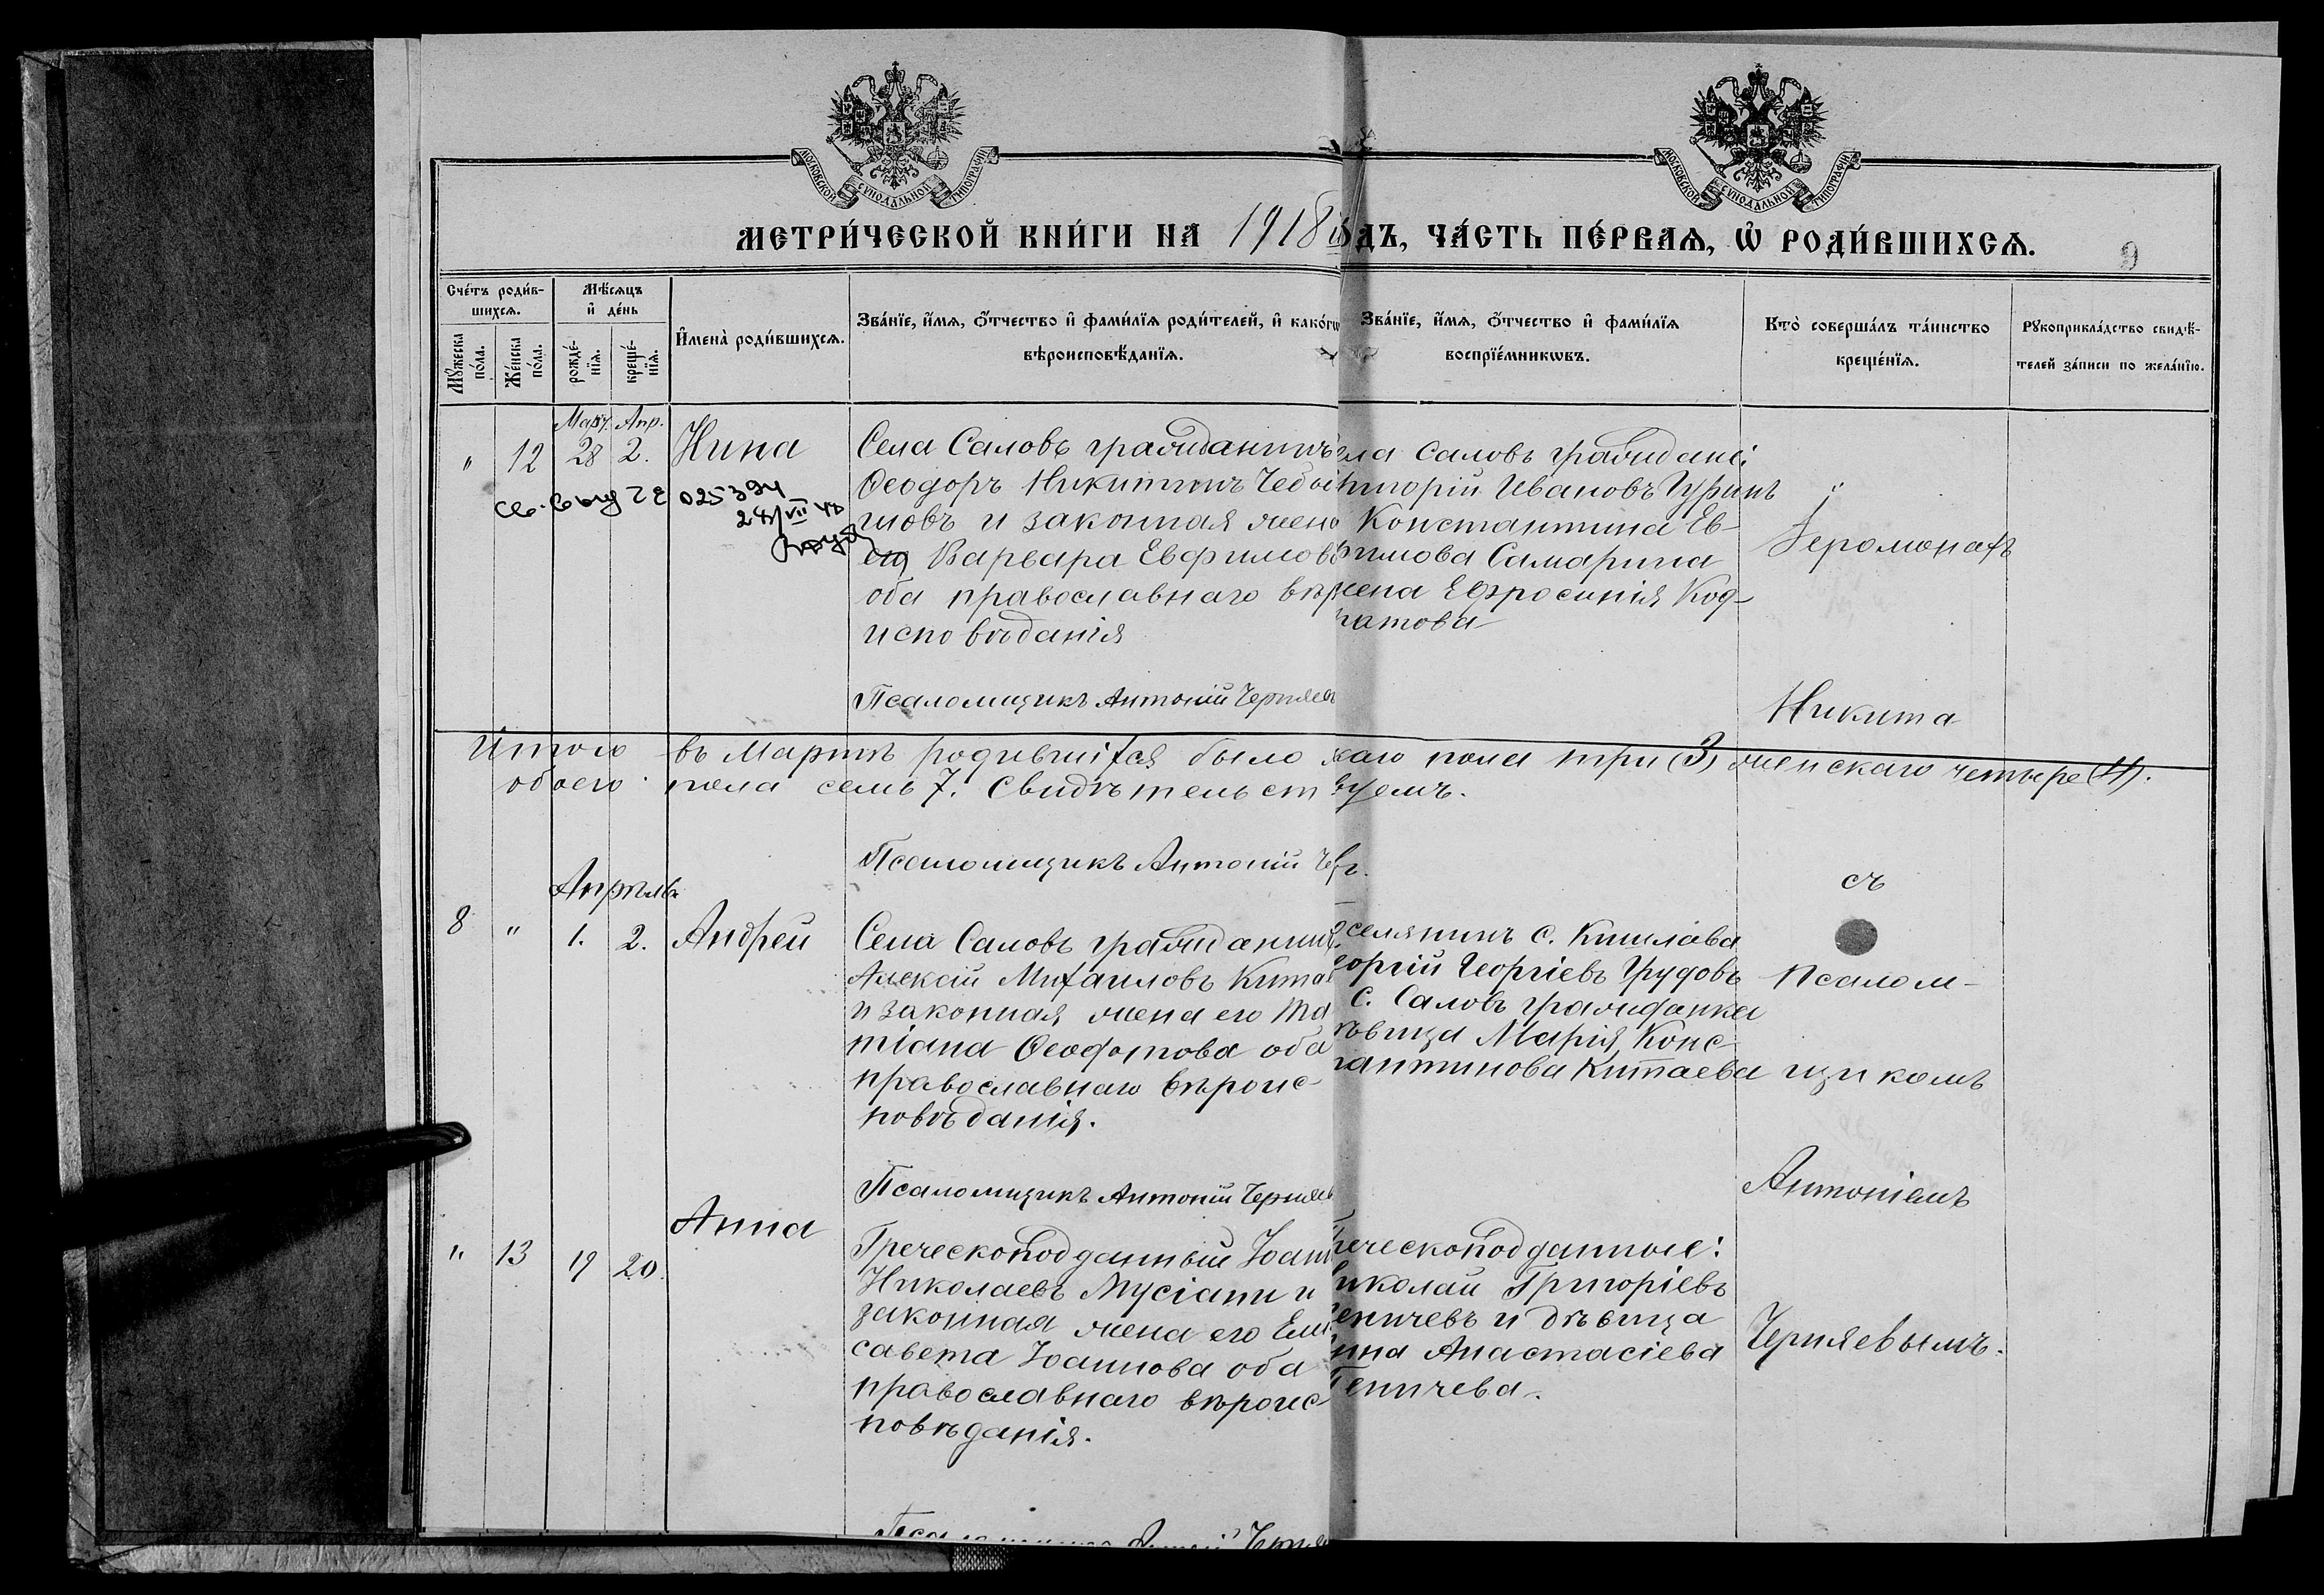 МОСКОВСКОЙ СѴНОДАЛЬНОЙ ТИПОГРАФІИ
МОСКОВСКОЙ СѴНОДАЛЬНОЙ ТИПОГРАФІИ
МЕТРИ́ЧЕСКОЙ КНИ́ГИ НА 1918 ДЪ, ЧА́СТЬ ПЕ́РВАѦ, Ѡ РОДИ́ВШИХСѦ.
9
Сче́тъ роди́в-
шихсѧ.
Мѣ́сѧцъ
и҆ де́нь
Мꙋ́жеска
по́ла.
Же́нска
по́ла.
рожде́-
нїѧ.
креще́-
нїѧ.
И҆мена̀ роди́вшихсѧ.
Зва́нїе, и҆́мѧ, ѻ҆́тчество и҆ фами́лїѧ роди́телей, и҆ како́гѡ
вѣроисповѣ́данїѧ.
Зва́нїе, и҆́мѧ, ѻ҆́тчество и҆ фами́лїѧ
воспрїе́мникѡвъ.
Кто̀ соверша́лъ та́инство
креще́нїѧ.
Рꙋкоприкла́дство свидѣ́-
телей за́писи по жела́нїю.
Март. Апр.
" 12 28 2. Нина
025394
Села Саловъ гражданинъ
Ѳеодоръ Никитинъ
и законная жена
его Варвара Евфимов
оба православнаго вѣр
исповѣданія
Псаломщикъ Антоній Черняев
ла Саловъ граждане:
игорій Ивановъ
Константина Ев-
фимова Самарина
жена Ефросинія Код-
ратова
Іеромонахъ
Никита
Итого въ Мартѣ родившихся было скаго пола три (3) женскаго четыре (4).
обоего пола семь 7. Свидѣтельствуемъ.
Псаломщикъ Антоній Чер
Апрѣль
8 " 1. 2. Андрей
Села Саловъ гражданин
Алексій Михаиловъ Кита
и законная жена его Та
тіана Ѳеодотова оба
православнаго вѣроис-
повѣданія.
Псаломщикъ Антоній Черняев
селянинъ с. Кишлава
еоргій Георгіевъ Грудовъ
с. Саловъ гражданка
ѣвица Мария Конс-
тантинова Китаева
съ
Псалом-
щикомъ
Антоніемъ
Черняевымъ.
" 13 19 20. Анна
Греческоподданный Іоанн
Николаевъ Мусіати и
законная жена его Ели
савета Іоаннова оба
православнаго вѣроис
повѣданія.
реческоподданные:
иколай Григоріевъ
Геничевъ и дѣвица
нна Анастасіева
Геничева.